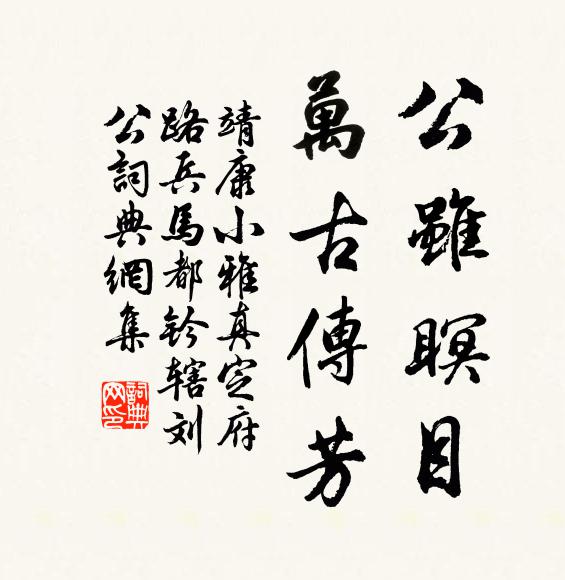 公雖瞑目
萬古傳芳
靖康小雅真定府
路兵馬都鈐辖刘
公詞典網集
詞典
网印